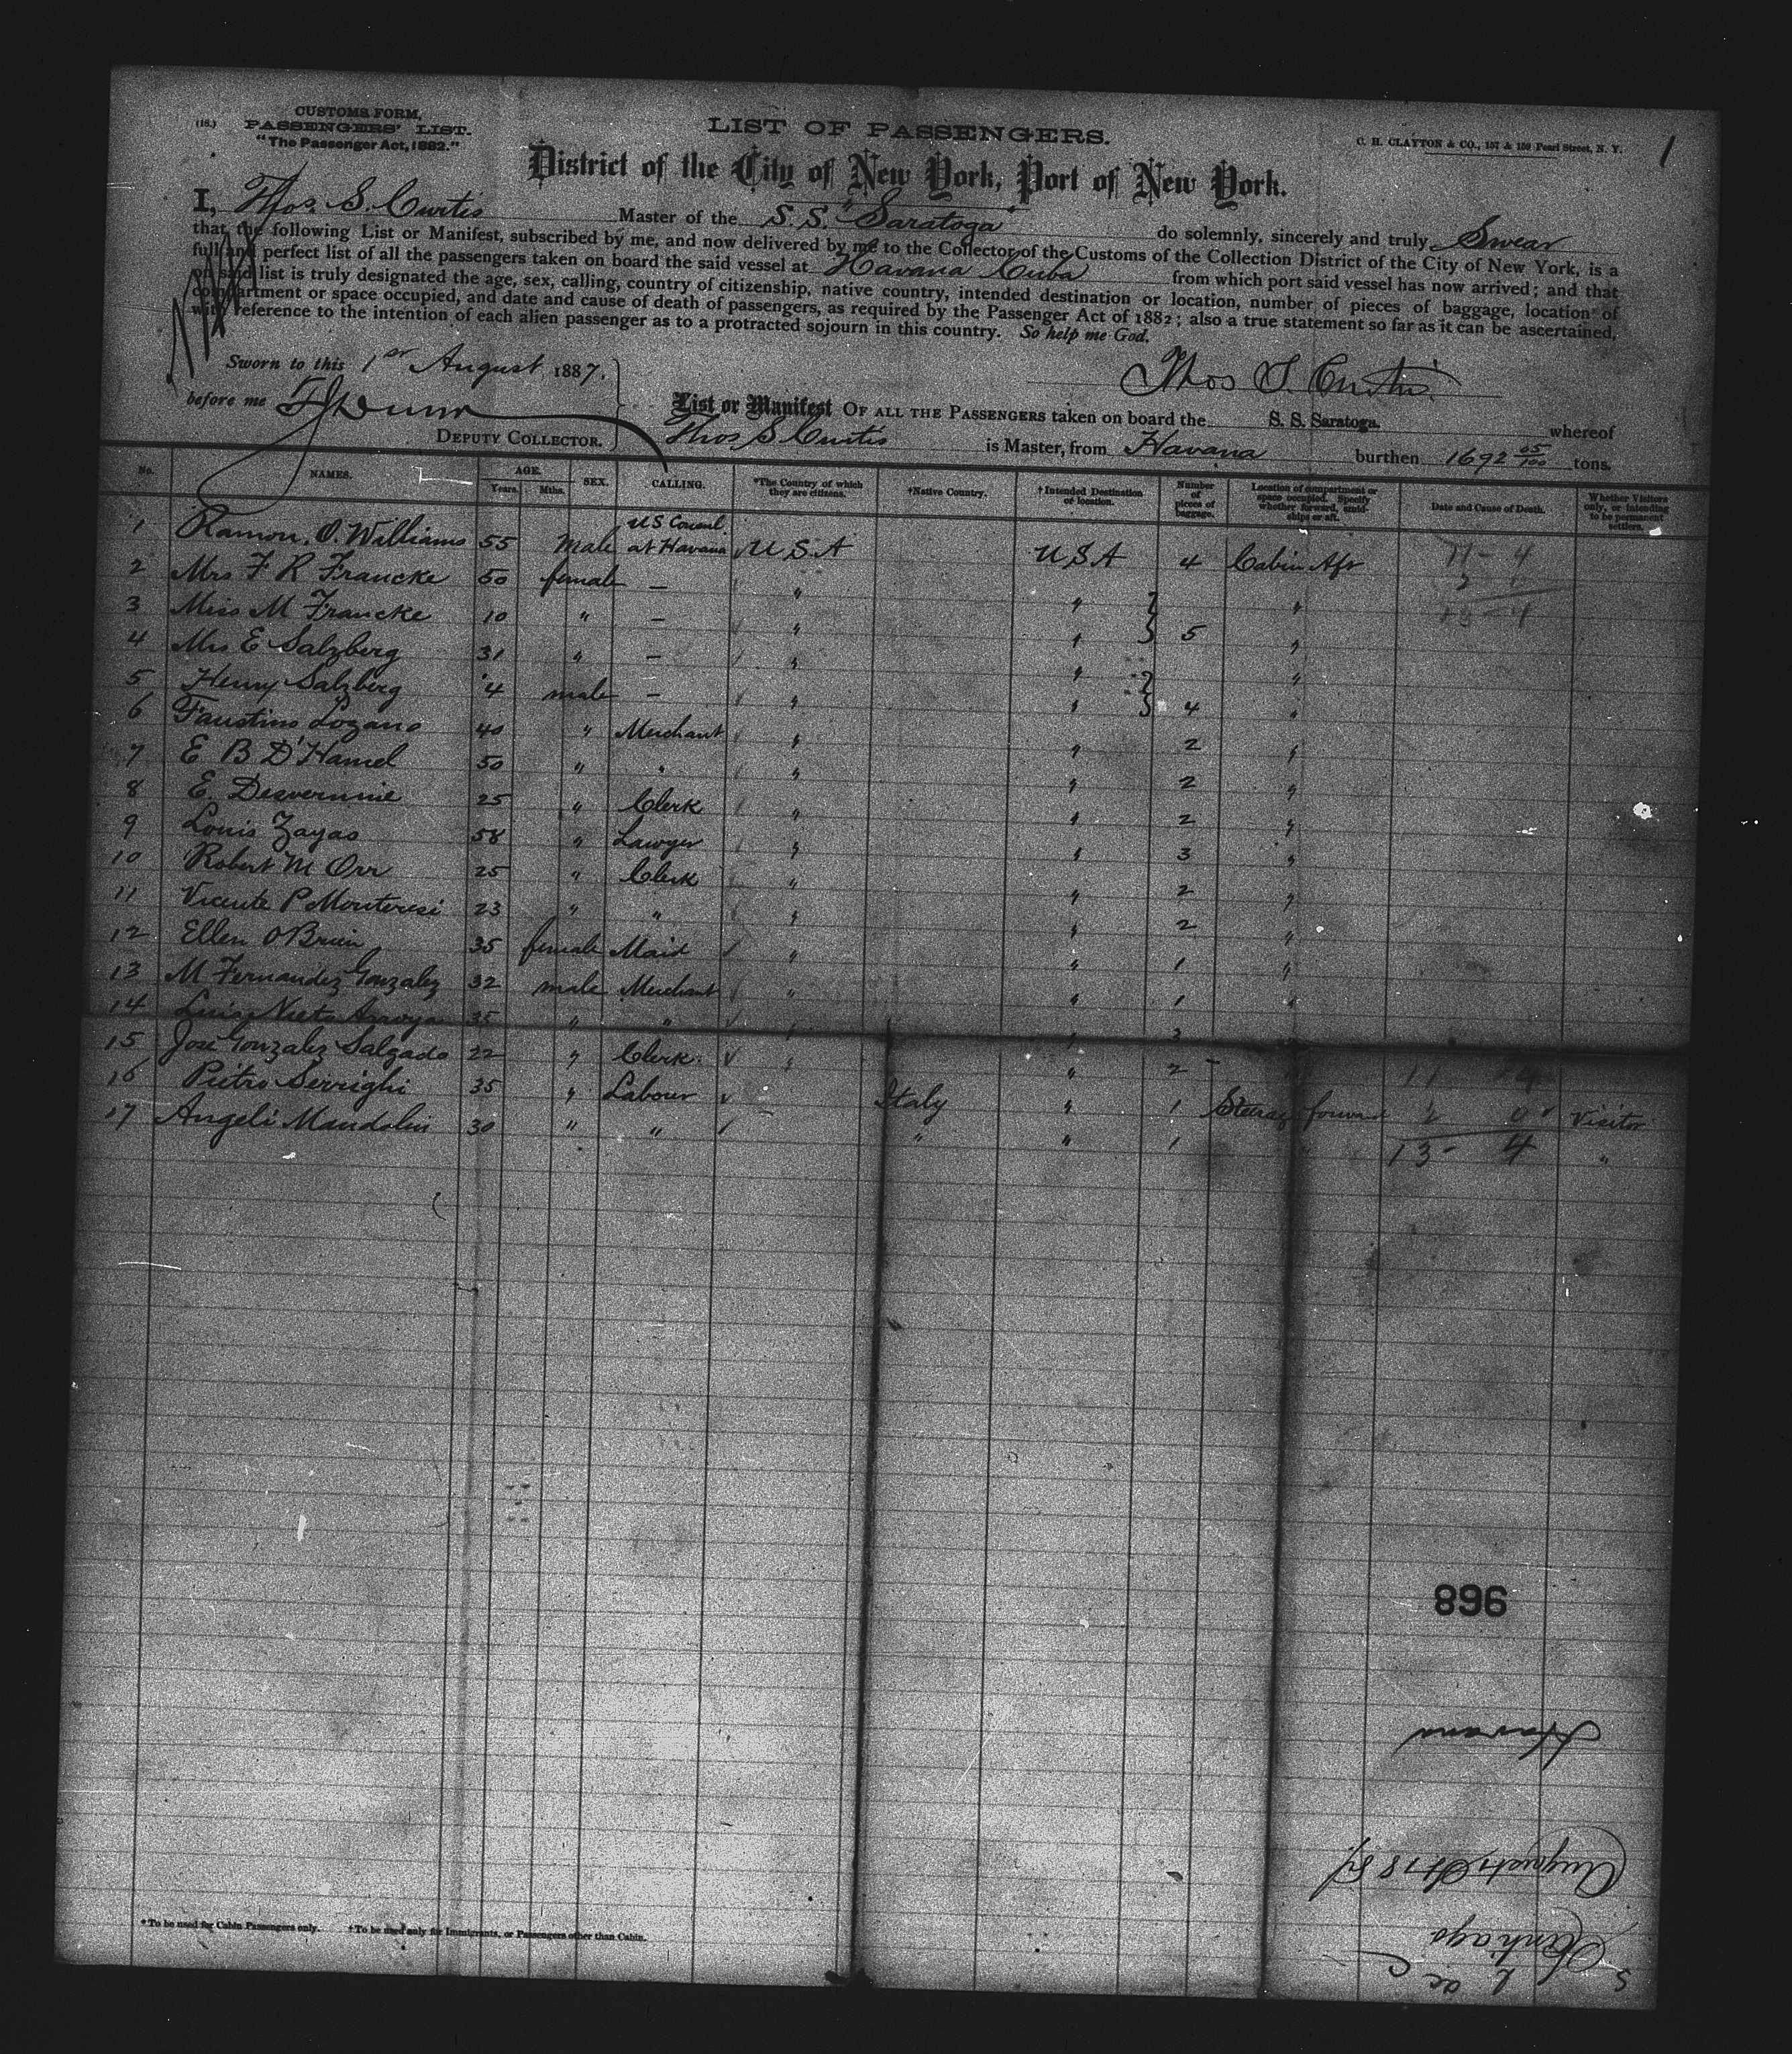 CUSTOMS FORM,
(18.) PASSENGERS' LIST.
"The Passenger Act, 1882."
LIST OF PASSENGERS.
C. H. CLAYTON & CO., 157 & 159 Pearl Street, N. Y.
1
District of the City of New York, Port of New York.
I, Thos. S. Curtis Master of the S. S. "Saratoga" do solemnly, sincerely and truly Swear
that the following List or Manifest, subscribed by me, and now delivered by me to the Collector of the Customs of the Collection District of the City of New York, is a
full and perfect list of all the passengers taken on board the said vessel at Havana Cuba from which port said vessel has now arrived; and that
on said list is truly designated the age, sex, calling, country of citizenship, native country, intended destination or location, number of pieces of baggage, location of
compartment or space occupied, and date and cause of death of passengers, as required by the Passenger Act of 1882; also a true statement so far as it can be ascertained,
with reference to the intention of each alien passenger as to a protracted sojourn in this country. So help me God.
Sworn to this 1st August 1887. Thos S Curtis
before me
DEPUTY COLLECTOR.
List or Manifest OF ALL THE PASSENGERS taken on board the S. S. Saratoga. whereof
Thos S Curtis is Master, from Havana burthen 1692 05/100 tons.
No. NAMES. AGE. Years. Mths. SEX. CALLING. *The Country of which they are citizens. †Native Country. †Intended Destination or location. Number of pieces of baggage. Location of compartment or space occupied. Specify whether forward, amidships or aft. Date and Cause of Death. Whether Visitors only, or intending to be permanent settlers.
1 Ramon. O. Williams 55 Male US Consul at Havana U S A U S A 4 Cabin Aft 11 - 4
2 Mrs F R Francke 50 female — " " "
3 Miss M Francke 10 " — " " 5 "
4 Mrs E Salzberg 31 " — " " "
5 Henry Salzberg 4 male — " " 4 "
6 Faustino Lozano 40 " Merchant " " 2 "
7 E B D'Hamel 50 " " " " 2 "
8 E. Desvernine 25 " Clerk " " 2 "
9 Louis Zayas 58 " Lawyer " " 3 "
10 Robert M Orr 25 " Clerk " " 2 "
11 Vicente P Monteresi 23 " " " " 2 "
12 Ellen O Brien 35 female Maid " " 1 "
13 M Fernandez Gonzalez 32 male Merchant " " 1 "
14 Luis Nieto Arroyo 35 " " " " 3
15 José Gonzalez Salgado 22 " Clerk " " 2 " 11 4
16 Pietro Serrighi 35 " Labour Italy " 1 Steerage forward 2 0 Visitor
17 Angeli Mandolin 30 " " " " 1 " 13 - 4 "
896
Havana
August 1st 1887
Santiago
de C
*To be used for Cabin Passengers only. †To be used only for Immigrants, or Passengers other than Cabin.